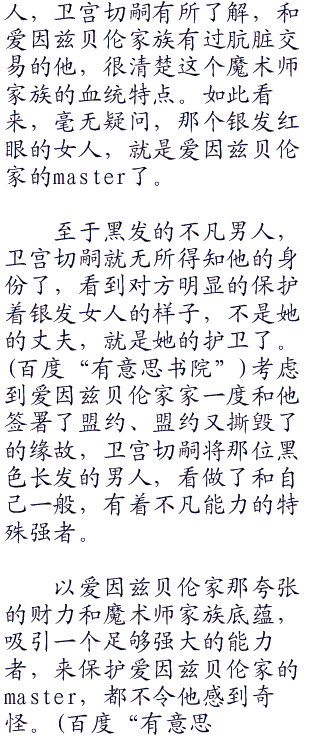 人，卫宫切嗣有所了解，和
爱因兹贝伦家族有过肮脏交
易的他，很清楚这个魔术师
家族的血统特点。如此看
来，毫无疑问，那个银发红
眼的女人，就是爱因兹贝伦
家的master了。
至于黑发的不凡男人，
卫宫切嗣就无所得知他的身
份了，看到对方明显的保护
着银发女人的样子，不是她
的丈夫，就是她的护卫了。
(百度“有意思书院”)考虑
到爱因兹贝伦家家一度和他
签署了盟约、盟约又撕毁了
的缘故，卫宫切嗣将那位黑
色长发的男人，看做了和自
己一般，有着不凡能力的特
殊强者。
以爱因兹贝伦家那夸张
的财力和魔术师家族底蕴，
吸引一个足够强大的能力
者，来保护爱因兹贝伦家的
master，都不令他感到奇
怪。(百度“有意思